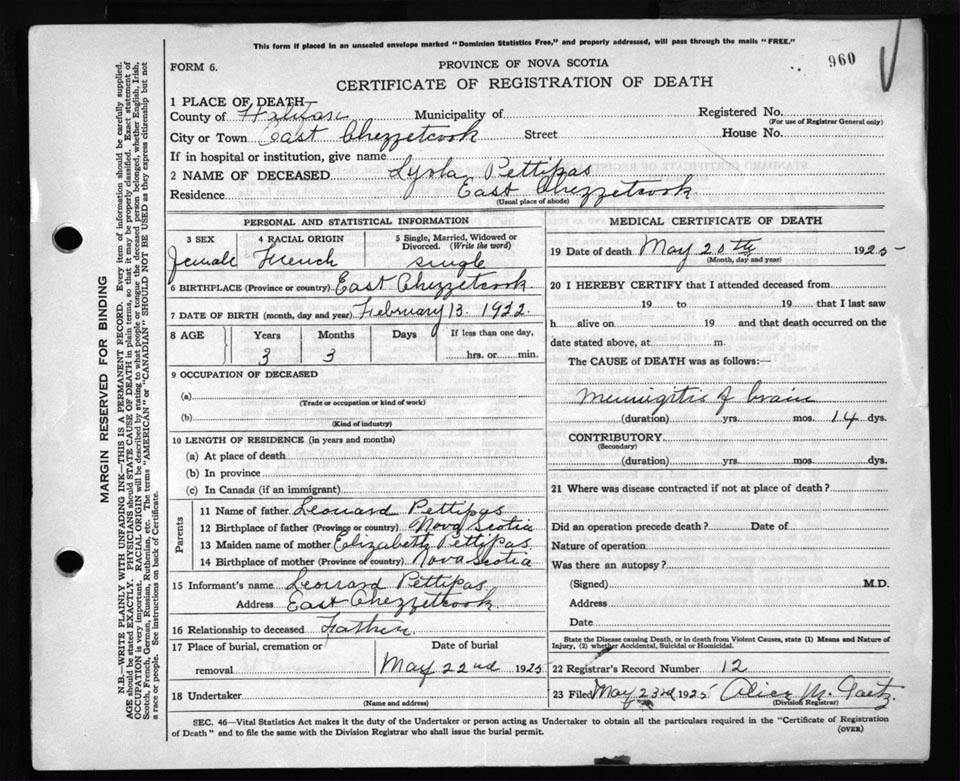 This form if placed in an unsealed envelope marked "Dominion Statistics Free," and properly addressed, will pass through the mails "FREE."
960
FORM 6.
PROVINCE OF NOVA SCOTIA
CERTIFICATE OF REGISTRATION OF DEATH
1 PLACE OF DEATH—
County of Halifax Municipality of Registered No.
(For use of Registrar General only)
City or Town East Chezzetcook Street House No.
If in hospital or institution, give name
2 NAME OF DECEASED Lyola Pettipas
Residence East Chezzetcook
(Usual place of abode)
PERSONAL AND STATISTICAL INFORMATION
3 SEX 4 RACIAL ORIGIN 5 Single, Married, Widowed or Divorced. (Write the word)
Female French single
6 BIRTHPLACE (Province or country) East Chezzetcook
7 DATE OF BIRTH (month, day and year) February 13. 1922.
8 AGE Years Months Days If less than one day,
3 3 hrs. or min.
9 OCCUPATION OF DECEASED
(a)
(Trade or occupation or kind of work)
(b)
(Kind of industry)
10 LENGTH OF RESIDENCE (in years and months)
(a) At place of death
(b) In province
(c) In Canada (if an immigrant)
Parents
11 Name of father Leonard Pettipas
12 Birthplace of father (Province or country) Nova Scotia
13 Maiden name of mother Elizabeth Pettipas
14 Birthplace of mother (Province or country) Nova Scotia
15 Informant's name Leonard Pettipas
Address East Chezzetcook
16 Relationship to deceased Father.
17 Place of burial, cremation or removal Date of burial
May 22nd 1925
18 Undertaker
(Name and address)
MEDICAL CERTIFICATE OF DEATH
19 Date of death May 20th 1925
(Month, day and year)
20 I HEREBY CERTIFY that I attended deceased from
19 to 19 that I last saw
h alive on 19 and that death occurred on the
date stated above, at m.
The CAUSE of DEATH was as follows:—
Meningitis of brain
(duration) yrs. mos. 14 dys.
CONTRIBUTORY
(Secondary)
(duration) yrs. mos. dys.
21 Where was disease contracted if not at place of death?
Did an operation precede death? Date of
Nature of operation
Was there an autopsy?
(Signed) M.D.
Address
Date
State the Disease causing Death, or in death from Violent Causes, state (1) Means and Nature of
Injury, (2) whether Accidental, Suicidal or Homicidal.
22 Registrar's Record Number 12
23 Filed May 23rd 1925 Alice M. Gaetz.
(Division Registrar)
SEC. 46—Vital Statistics Act makes it the duty of the Undertaker or person acting as Undertaker to obtain all the particulars required in the "Certificate of Registration
of Death" and to file the same with the Division Registrar who shall issue the burial permit.
(OVER)
MARGIN RESERVED FOR BINDING
N.B.—WRITE PLAINLY WITH UNFADING INK—THIS IS A PERMANENT RECORD. Every item of information should be carefully supplied.
AGE should be stated EXACTLY. PHYSICIANS should STATE CAUSE OF DEATH in plain terms, so that it may be properly classified. Exact statement of
OCCUPATION is very important. RACIAL ORIGIN will be described by stating to what people or tongue the deceased person belonged, whether English, Irish,
Scotch, French, German, Russian, Ruthenian, etc. The terms "AMERICAN" or "CANADIAN" SHOULD NOT BE USED as they express citizenship but not
a race or people. See instructions on back of Certificate.